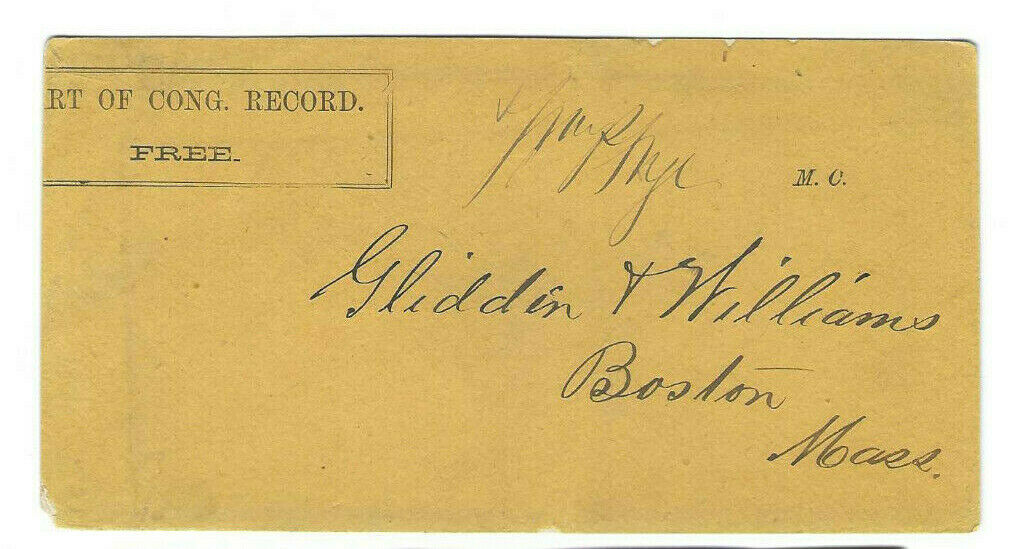 RT OF CONG. RECORD.
FREE.
Nye
M. C.
Gliddin & Williams
Boston
Mass.